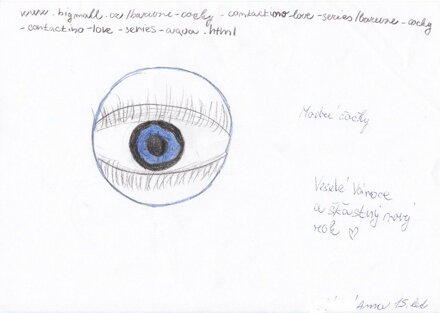 www.bigmall.cz/barevne-cocky-contactino-love-series/barevne-cocky
-contactino-love-series-aqua.html
Modré čočky
Veselé Vánoce
a šťastný nový
rok ♡
Anna 15. let